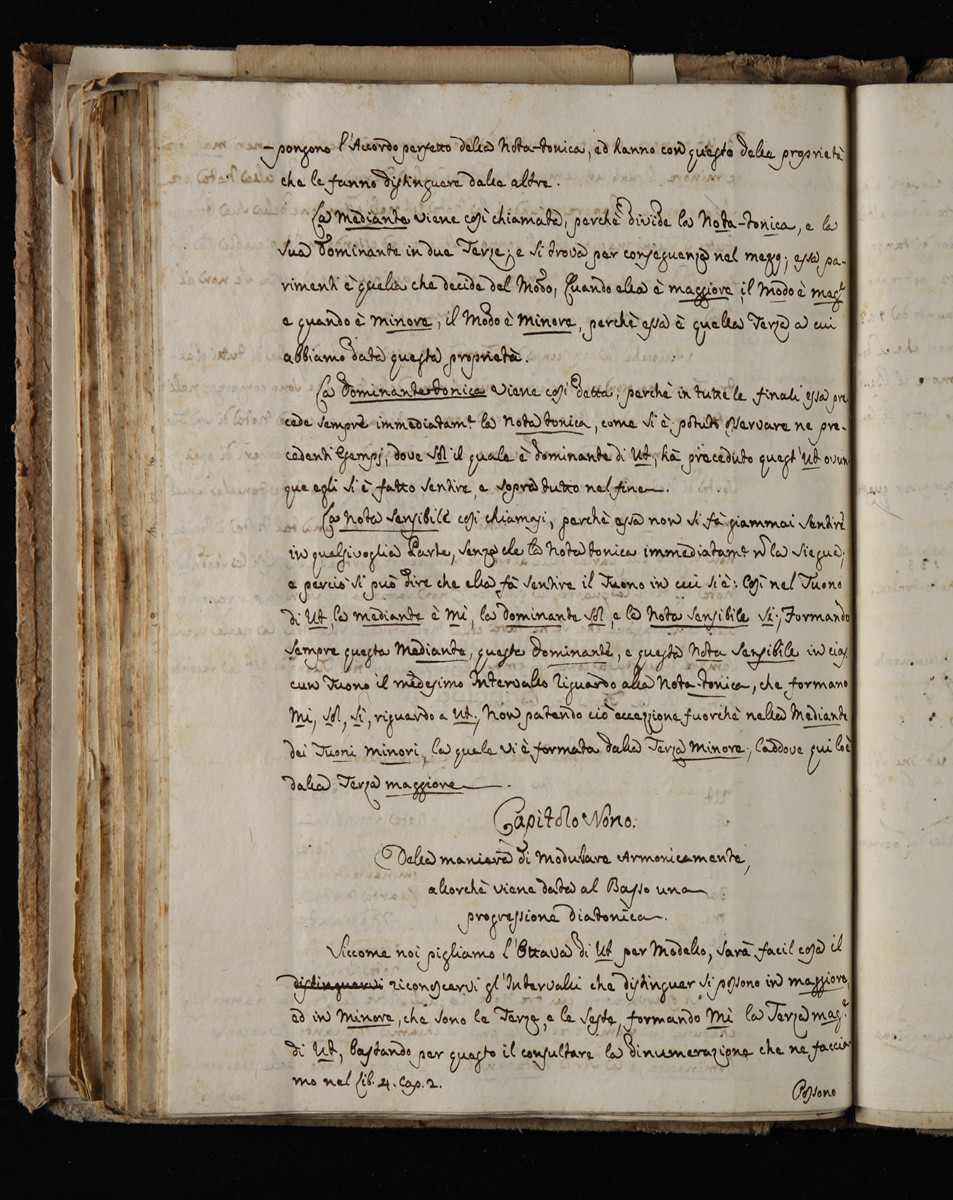 -pongono l'Accordo perfetto della Nota-tonica, ed hanno con questo delle proprietà
che le fanno distinguere dalle altre.
La Mediante viene così chiamata, perchè divide la Nota-tonica, e la
sua Dominante in due Terze; e si trova per conseguenza nel mezzo; essa pa-
rimenti è quella che decide del Modo, Quando ella è maggiore, il Modo è mag.re
e quando è Minore, il Modo è Minore, perchè essa è quella Terza a cui
abbiamo data questa proprietà.
La Dominante-tonica viene così detta, perchè in tutte le finali essa pre
cede sempre immediatam.te la Nota tonica, come si è potuto osservare ne pre-
cedenti Esempj, dove Sol il quale è dominante di Ut, hà preceduto quest'Ut ovun
que egli si è fatto sentire, e sopra tutto nel fine.
La Nota Sensibile così chiamasi, perchè essa non si fà giammai sentire
in qualsivoglia Parte, senza che la Nota tonica immediatam.te n la siegua;
e perciò si può dire che ella fà sentire il Tuono in cui si è: Così nel Tuono
di Ut la mediante è Mi, la dominante Sol, e la Nota Sensibile Si; Formando
sempre questa Mediante, questa dominante, e questa Nota Sensibile in cias
cun Tuono il medesimo Intervallo riguardo alla Nota-tonica, che formano
Mi, Sol, Si, riguardo a Ut; Non patendo ciò eccezzione fuorchè nella Mediante
dei Tuoni Minori, la quale vi è formata dalla Terza Minore, laddove qui lo è
dalla Terza maggiore.
Capitolo Nono.
Della maniera di Modulare Armonicamente,
allorchè viene data al Basso una
progressione Diatonica.
Siccome noi pigliamo l'Ottava di Ut per Modello, sarà facil cosa il
distinguervi riconoscervi gl'Intervalli che distinguer si possono in maggiore,
ed in Minore, che sono le Terze, e le Seste, formando Mi la Terza mag.re
di Ut, bastando per questo il consultare la dinumerazione che ne faccia
mo nel Lib. 4. Cap. 2.
Possono